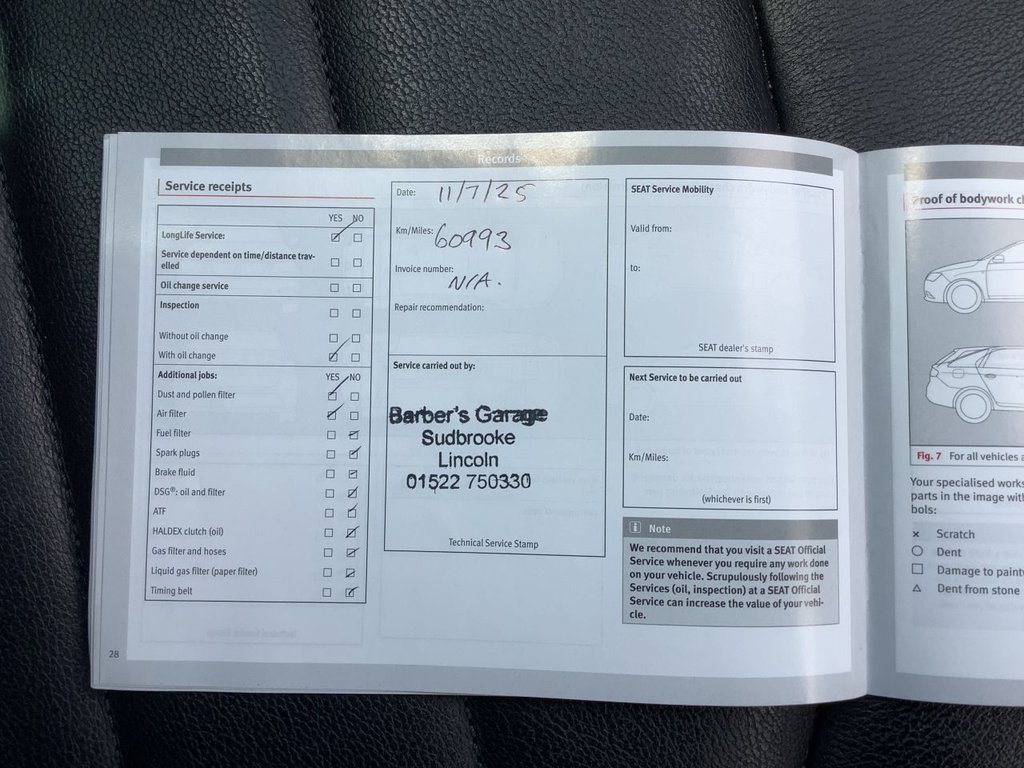 Records
Service receipts
YES NO
LongLife Service:
Service dependent on time/distance trav-
elled
Oil change service
Inspection
Without oil change
With oil change
Additional jobs: YES NO
Dust and pollen filter
Air filter
Fuel filter
Spark plugs
Brake fluid
DSG®: oil and filter
ATF
HALDEX clutch (oil)
Gas filter and hoses
Liquid gas filter (paper filter)
Timing belt
28
Date: 11/7/25
Km/Miles: 60993
Invoice number:
N/A.
Repair recommendation:
Service carried out by:
Barber's Garage
Sudbrooke
Lincoln
01522 750330
Technical Service Stamp
SEAT Service Mobility
Valid from:
to:
SEAT dealer's stamp
Next Service to be carried out
Date:
Km/Miles:
(whichever is first)
i Note
We recommend that you visit a SEAT Official
Service whenever you require any work done
on your vehicle. Scrupulously following the
Services (oil, inspection) at a SEAT Official
Service can increase the value of your vehi-
cle.
Proof of bodywork
Fig. 7 For all vehicles
Your specialised
parts in the image
bols:
× Scratch
Dent
Damage to
Dent from stone